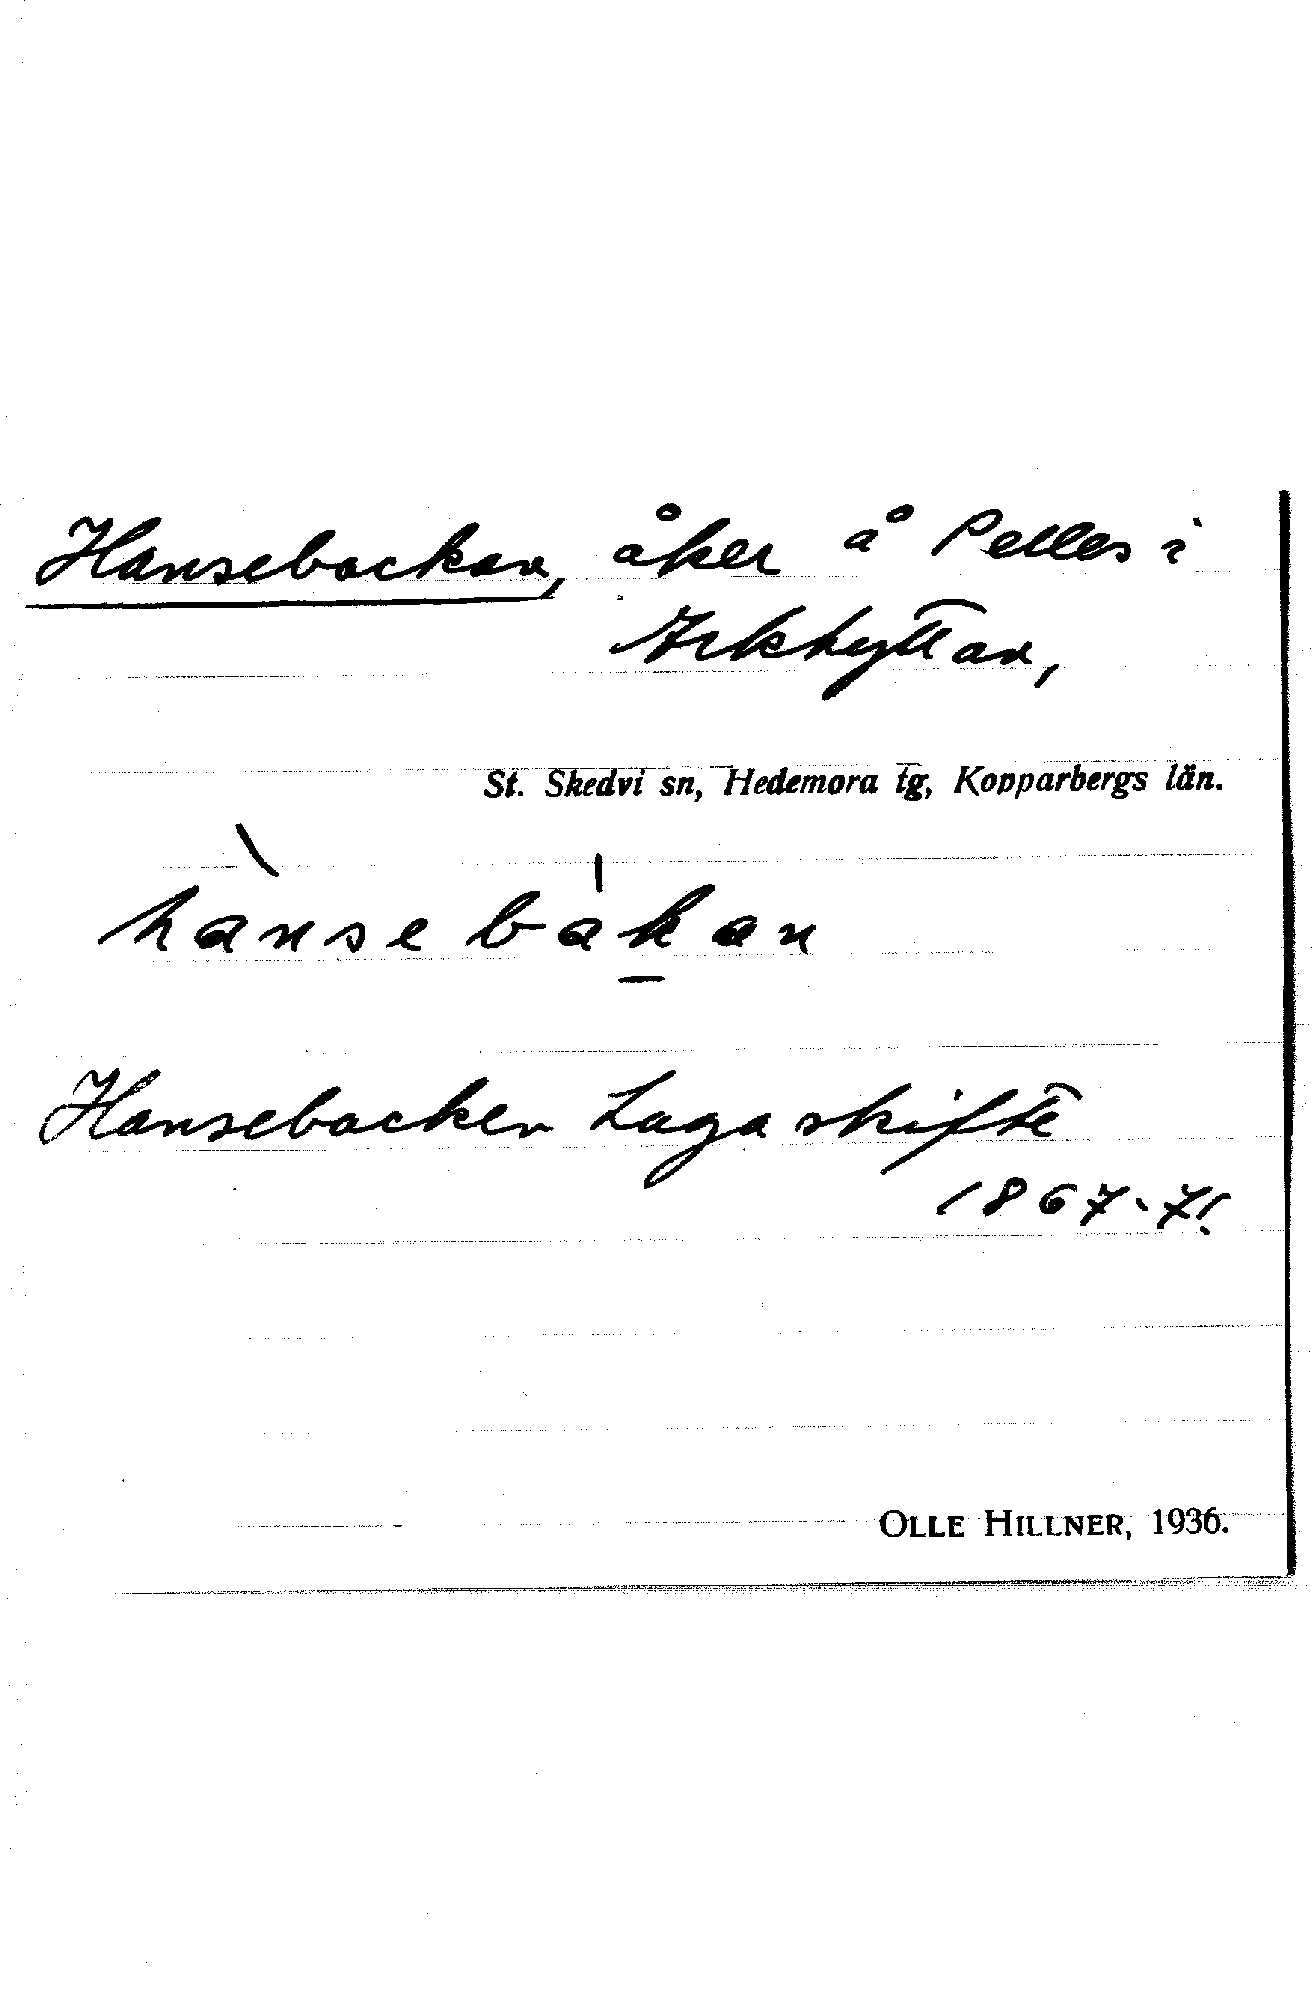 Hansebackan, åker å Pelles i
Arkhyttan,
St. Skedvi sn, Hedemora tg, Kopparbergs län.
hànsebákan
Hansebacken Laga skifte
1867-71.
OLLE HILLNER, 1936.